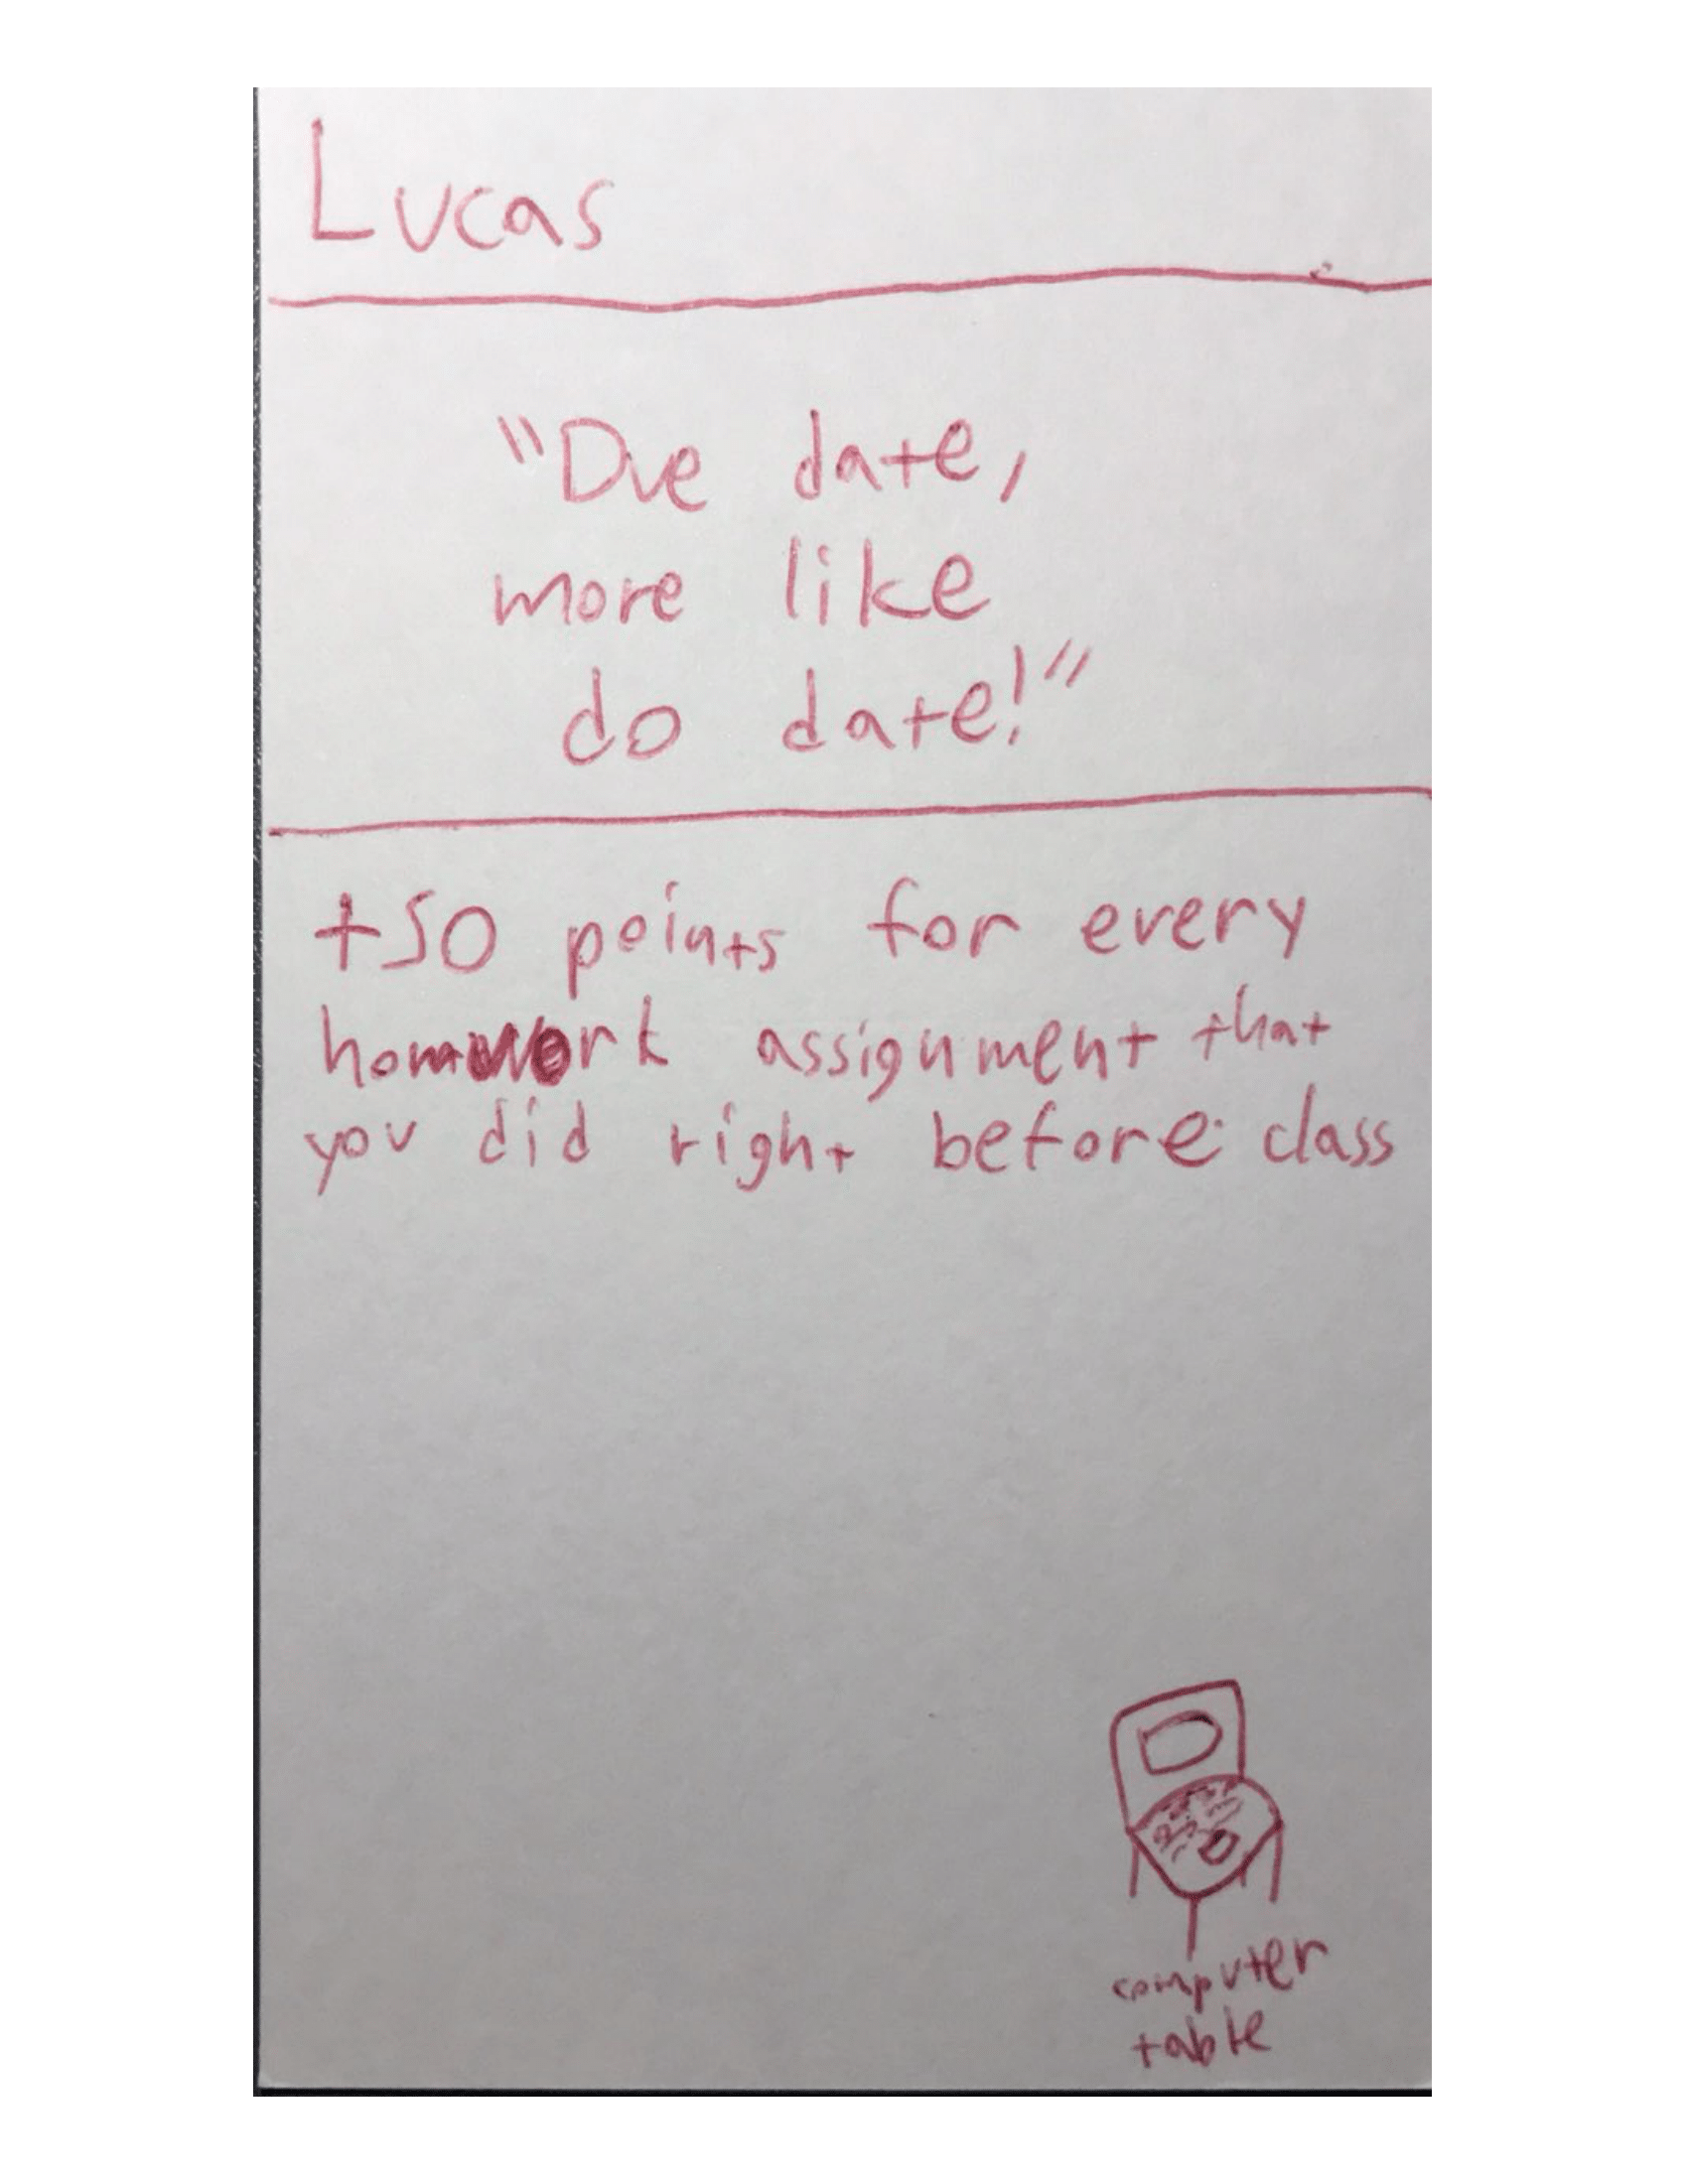 Lucas
"Due date,
more like
do date!"
+50 points for every
homework assignment that
you did right before class
computer
table